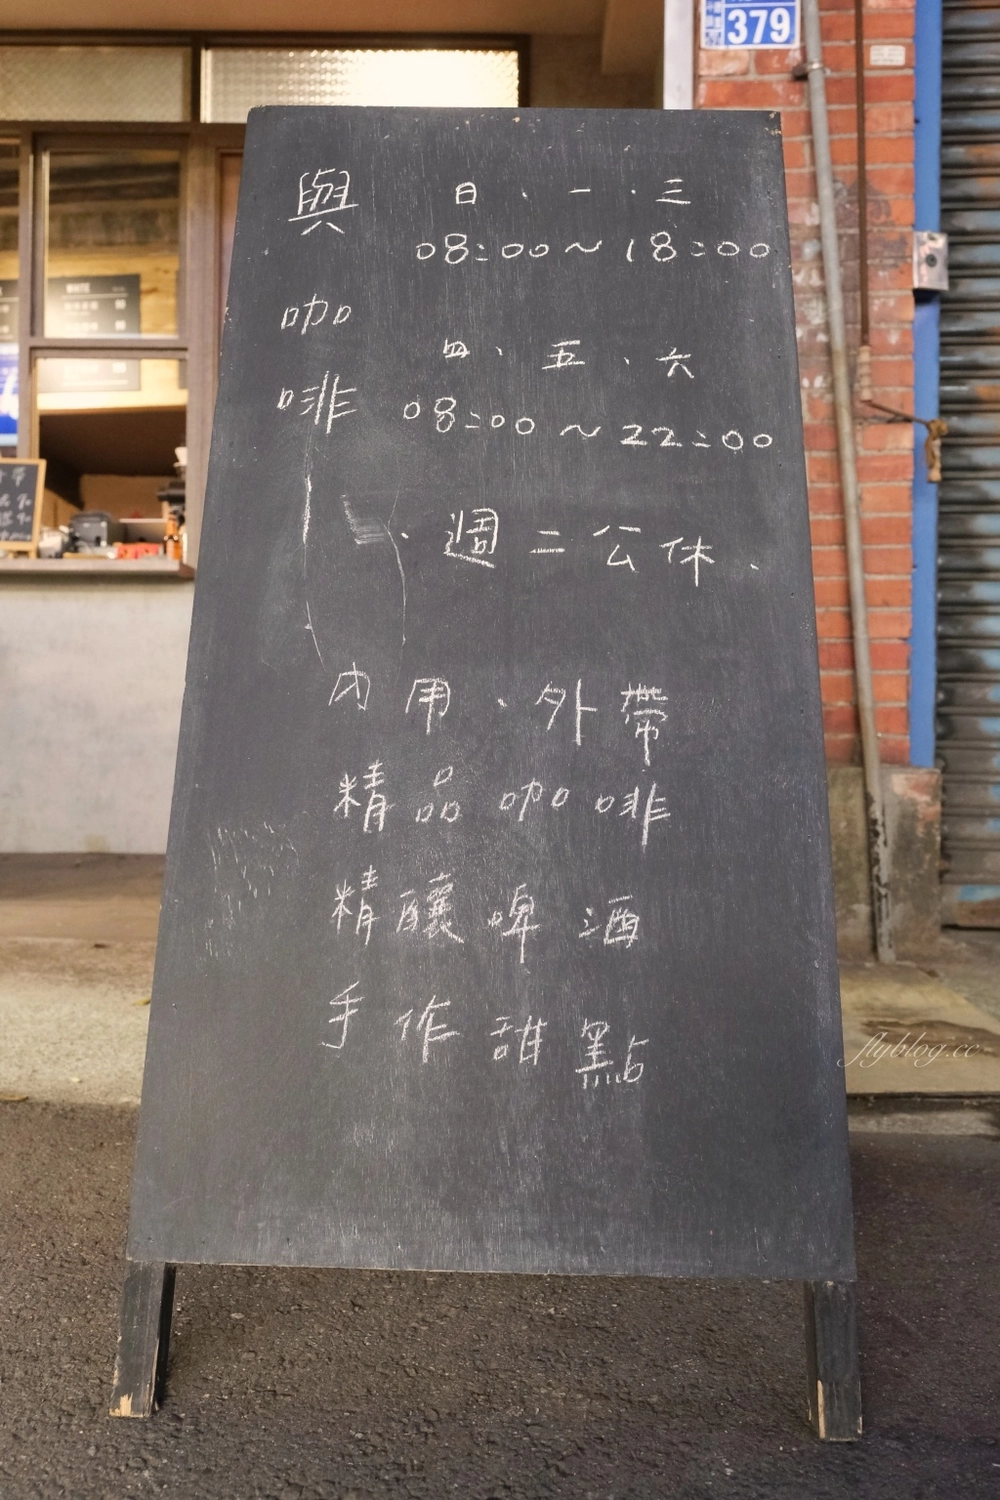 379
與咖啡
日．一．三
08:00～18:00
四．五．六
08:00～22:00
．週二公休．
內用．外帶
精品咖啡
精釀啤酒
手作甜點
flyblog.cc